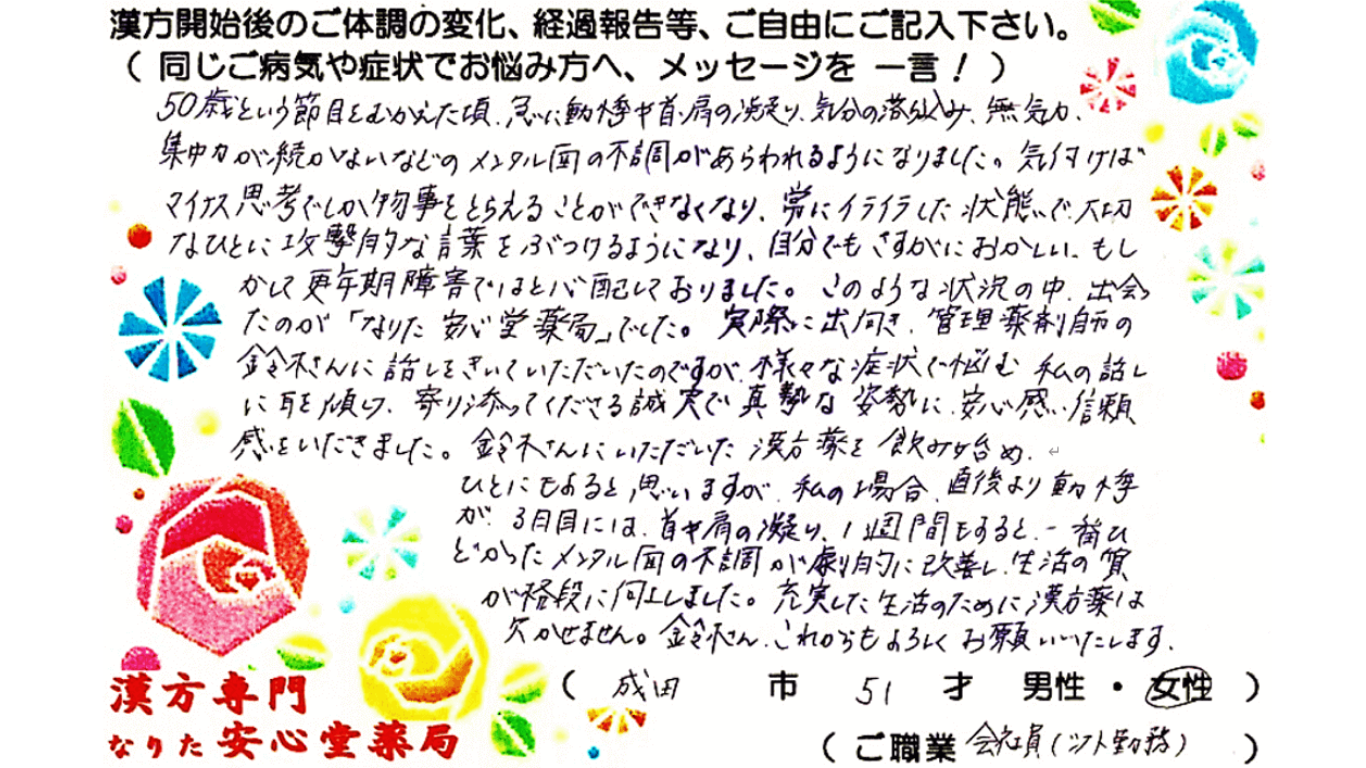 漢方開始後のご体調の変化、経過報告等、ご自由にご記入下さい。
( 同じご病気や症状でお悩み方へ、メッセージを 一言！ )
50歳という節目をむかえた頃、急に動悸や首、肩の凝り、気分の落込み、無気力、
集中力が続かないなどのメンタル面の不調があらわれるようになりました。気付けば
マイナス思考でしか物事をとらえることができなくなり、常にイライラした状態で大切
なひとに攻撃的な言葉をぶつけるようになり、自分でもさすがにおかしい、もし
かして更年期障害ではと心配しておりました。このような状況の中、出会っ
たのが「なりた 安心堂薬局」でした。実際に出向き、管理薬剤師の
鈴木さんに話しをきいていただいたのですが、様々な症状で悩む 私の話し
に耳を傾け、寄り添ってくださる誠実で真摯な姿勢に、安心感、信頼
感をいだきました。鈴木さんにいただいた漢方薬を飲み始め、
ひとにもよると思いますが、私の場合、直後より動悸
が、3日目には、首や肩の凝り、1週間もすると、一番ひ
どかったメンタル面の不調が劇的に改善し、生活の質
が格段に向上しました。充実した生活のために漢方薬は
欠かせません。鈴木さん、これからもよろしくお願いいたします。
( 成田 市 51 才 男性 ・ 女性 )
漢方専門
なりた 安心堂薬局
( ご職業 会社員(シフト勤務) )